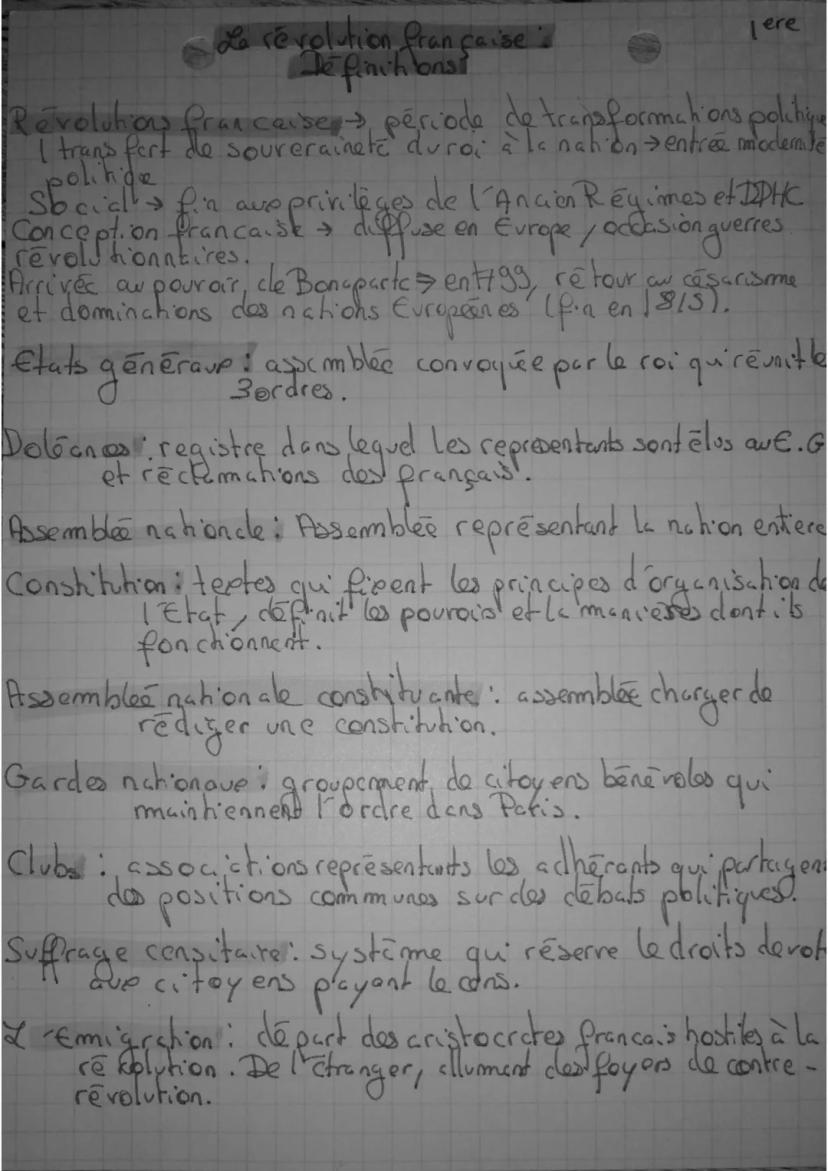 1ere
La révolution française :
Définitions
Révolutions francaise → période de transformations politique
( transfert de souveraineté du roi à la nation → entrée modernité
politique
Social → fin aux privilèges de l'Ancien Régimes et DDHC
Conception francaise → diffuse en Europe, occasion guerres
révolutionnaires.
Arrivée au pouvoir, de Bonaparte → en 1799, retour au césarisme
et dominations des nations Européenes (fin en 1815).
Etats généraux : assemblée convoquée par le roi qui réunit le
3 ordres.
Doléances : registre dans lequel les representants sont élus aux E.G
et réclamations des français.
Assemblée nationale : Assemblée représentant la nation entiere
Constitution : textes qui fixent les principes d'organisation de
l'Etat, définit les pouvoirs et la manières dont ils
fonctionnent.
Assemblée nationale constituante : assemblée charger de
rédiger une constitution.
Gardes nationaux : groupement de citoyens bénévoles qui
maintiennent l'ordre dans Paris.
Clubs : associations représentants les adhérants qui partagen
des positions communes sur des débats politiques.
Suffrage censitaire : système qui réserve le droits de vot
aux citoyens payant le cens.
L'Emigration : départ des aristocrates francais hostiles à la
révolution. De l'étranger, allument des foyers de contre-
révolution.